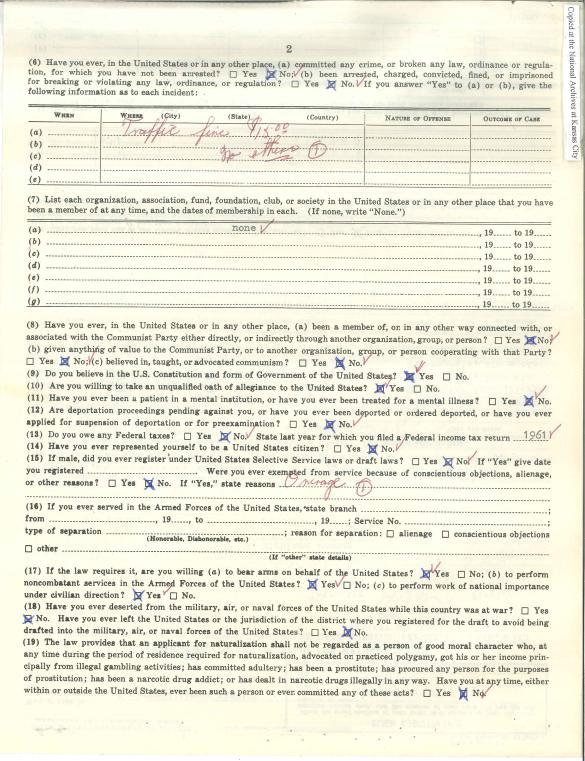 Copied at the National Archives at Kansas City
2
(6) Have you ever, in the United States or in any other place, (a) committed any crime, or broken any law, ordinance or regula-
tion, for which you have not been arrested? ☐ Yes ☒ No; (b) been arrested, charged, convicted, fined, or imprisoned
for breaking or violating any law, ordinance, or regulation? ☐ Yes ☒ No. If you answer "Yes" to (a) or (b), give the
following information as to each incident:
WHEN WHERE (City) (State) (Country) NATURE OF OFFENSE OUTCOME OF CASE
(a) Traffic fine $15.00
(b) no others ①
(c)
(d)
(e)
(7) List each organization, association, fund, foundation, club, or society in the United States or in any other place that you have
been a member of at any time, and the dates of membership in each. (If none, write "None.")
(a) none , 19...... to 19......
(b) , 19...... to 19......
(c) , 19...... to 19......
(d) , 19...... to 19......
(e) , 19...... to 19......
(f) , 19...... to 19......
(g) , 19...... to 19......
(8) Have you ever, in the United States or in any other place, (a) been a member of, or in any other way connected with, or
associated with the Communist Party either directly, or indirectly through another organization, group, or person? ☐ Yes ☒ No;
(b) given anything of value to the Communist Party, or to another organization, group, or person cooperating with that Party?
☐ Yes ☒ No; (c) believed in, taught, or advocated communism? ☐ Yes ☒ No.
(9) Do you believe in the U.S. Constitution and form of Government of the United States? ☒ Yes ☐ No.
(10) Are you willing to take an unqualified oath of allegiance to the United States? ☒ Yes ☐ No.
(11) Have you ever been a patient in a mental institution, or have you ever been treated for a mental illness? ☐ Yes ☒ No.
(12) Are deportation proceedings pending against you, or have you ever been deported or ordered deported, or have you ever
applied for suspension of deportation or for preexamination? ☐ Yes ☒ No.
(13) Do you owe any Federal taxes? ☐ Yes ☒ No. State last year for which you filed a Federal income tax return 1961
(14) Have you ever represented yourself to be a United States citizen? ☐ Yes ☒ No.
(15) If male, did you ever register under United States Selective Service laws or draft laws? ☐ Yes ☒ No. If "Yes" give date
you registered Were you ever exempted from service because of conscientious objections, alienage,
or other reasons? ☐ Yes ☒ No. If "Yes," state reasons Overage ①
(16) If you ever served in the Armed Forces of the United States, state branch ;
from , 19......, to , 19......; Service No. ;
type of separation ; reason for separation: ☐ alienage ☐ conscientious objections
(Honorable, Dishonorable, etc.)
☐ other
(If "other" state details)
(17) If the law requires it, are you willing (a) to bear arms on behalf of the United States? ☒ Yes ☐ No; (b) to perform
noncombatant services in the Armed Forces of the United States? ☒ Yes ☐ No; (c) to perform work of national importance
under civilian direction? ☒ Yes ☐ No.
(18) Have you ever deserted from the military, air, or naval forces of the United States while this country was at war? ☐ Yes
☒ No. Have you ever left the United States or the jurisdiction of the district where you registered for the draft to avoid being
drafted into the military, air, or naval forces of the United States? ☐ Yes ☒ No.
(19) The law provides that an applicant for naturalization shall not be regarded as a person of good moral character who, at
any time during the period of residence required for naturalization, advocated on practiced polygamy, got his or her income prin-
cipally from illegal gambling activities; has committed adultery; has been a prostitute; has procured any person for the purposes
of prostitution; has been a narcotic drug addict; or has dealt in narcotic drugs illegally in any way. Have you at any time, either
within or outside the United States, ever been such a person or even committed any of these acts? ☐ Yes ☒ No.